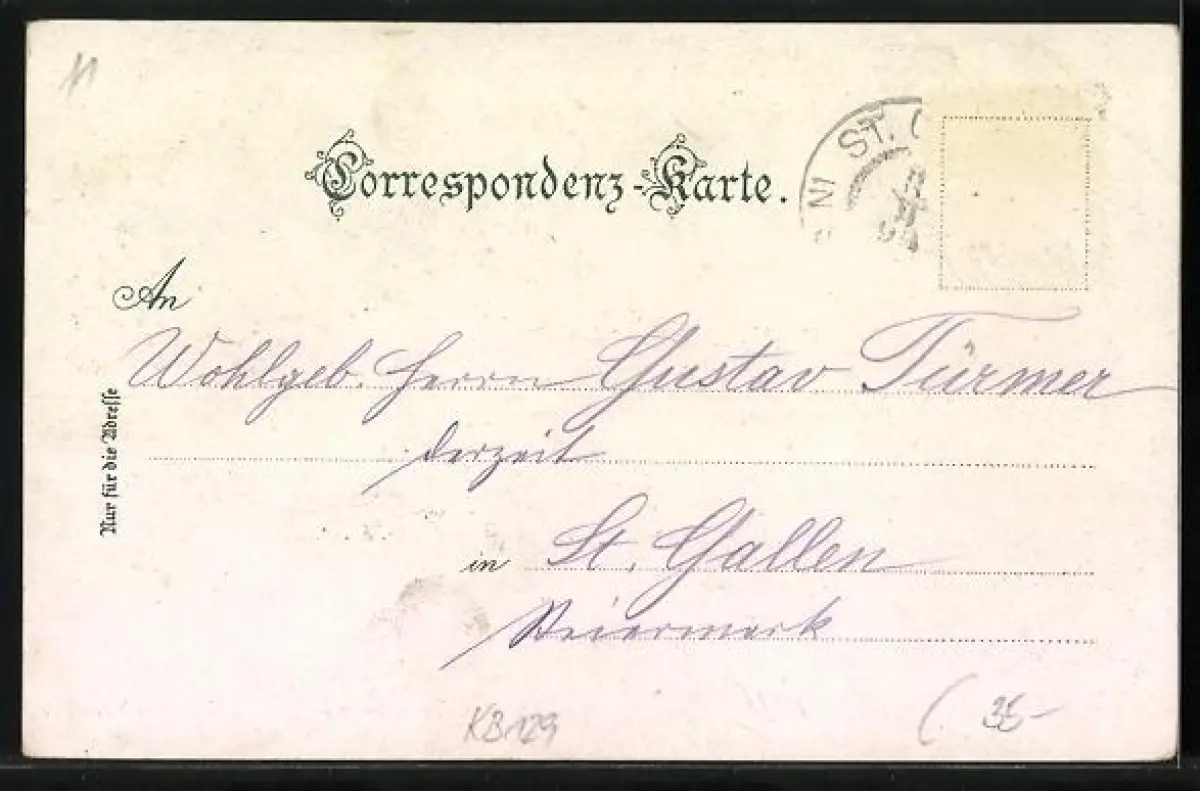 Correspondenz-Karte.
ST.
IN
An
Wohlgeb. Herrn Gustav Türmer
derzeit
in St. Gallen
Steiermark
Nur für die Adresse
KB129
35-